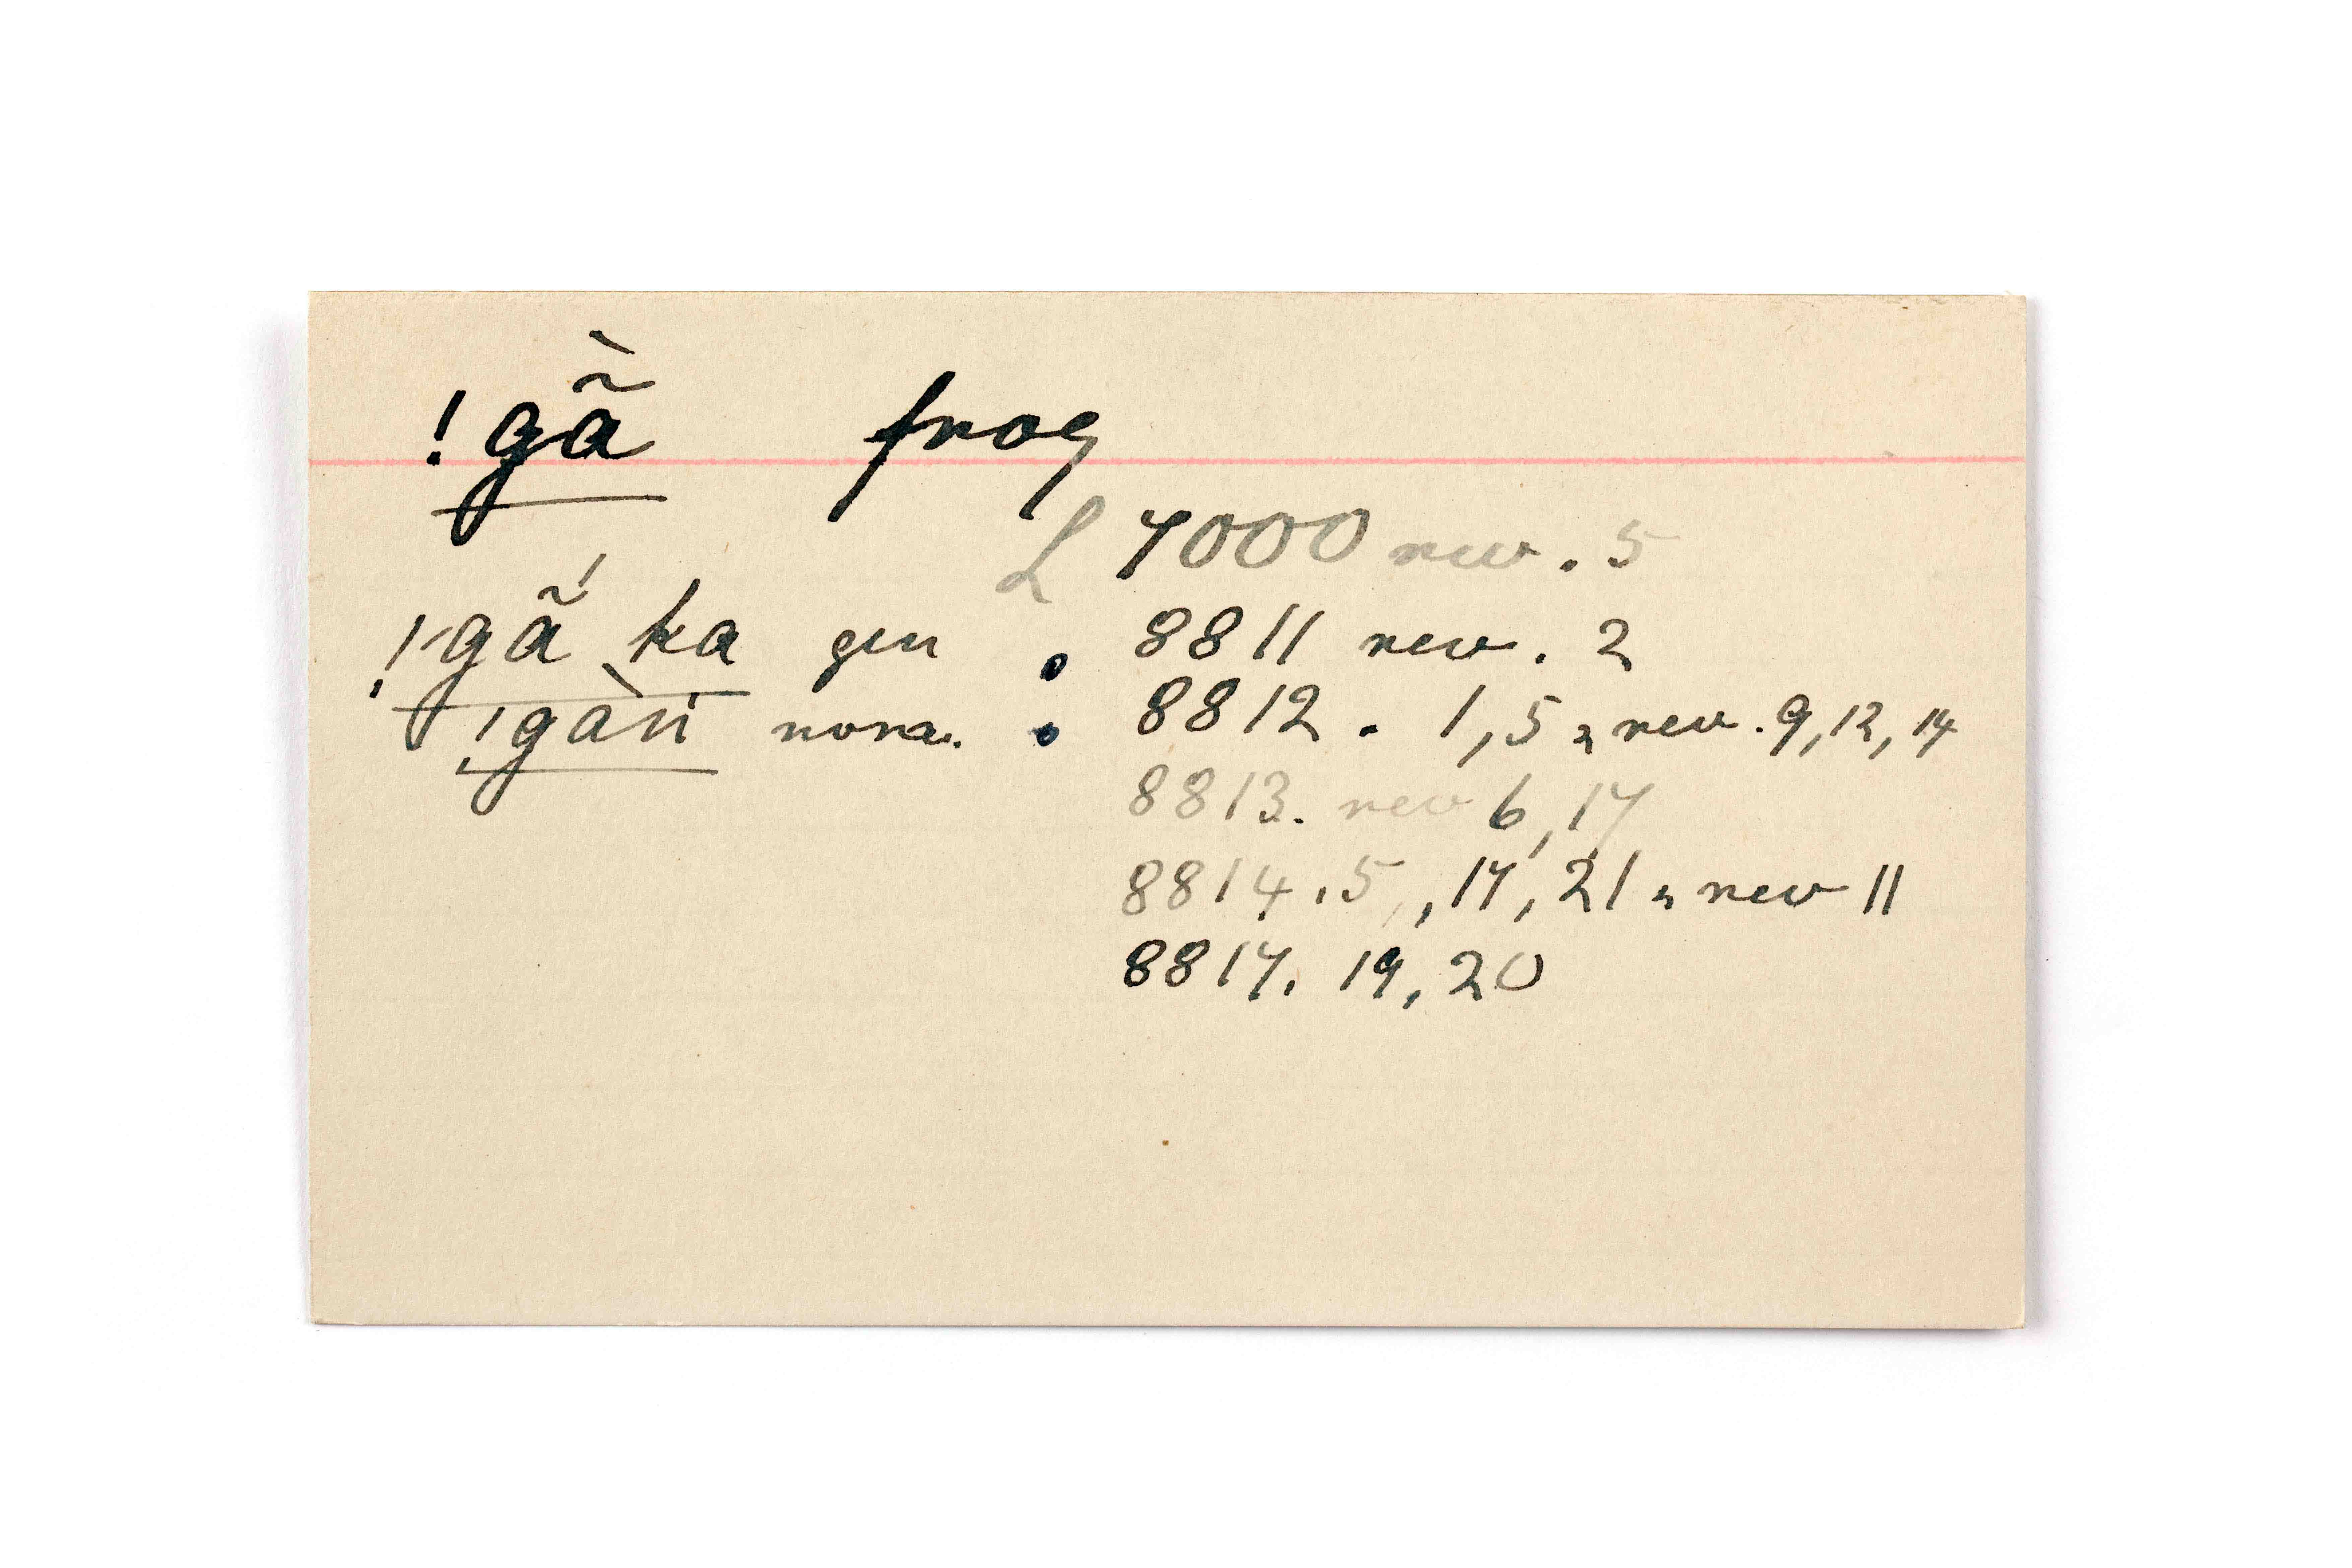 !gã̀ frog
L 7000 rev. 5
!gã́ ka gen • 8811 rev. 2
!gàn nom. • 8812. 1,5 & rev. 9,12,14
8813. rev 6,17
8814.5,,17,21 & rev 11
8817. 19,20